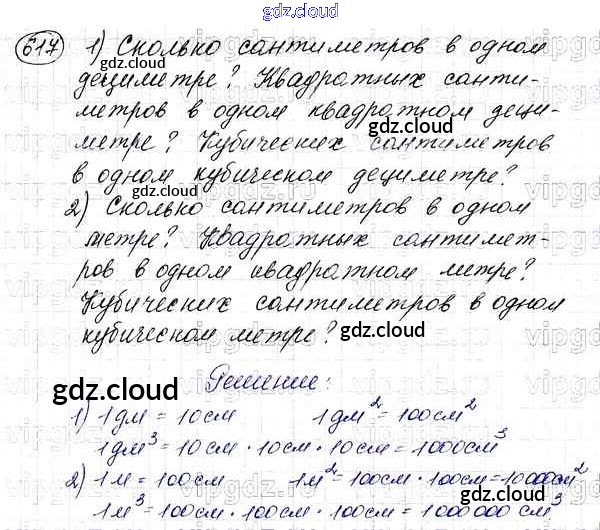 gdz.cloud
617 1) Сколько сантиметров в одном
gdz.cloud
дециметре? Квадратных санти-
метров в одном квадратном деци-
gdz.cloud
метре? Кубических сантиметров
в одном кубическом дециметре?
gdz.cloud
2) Сколько сантиметров в одном
метре? Квадратных сантимет-
ров в одном квадратном метре?
gdz.cloud
Кубических сантиметров в одном
кубическом метре?
gdz.cloud
Решение:
gdz.cloud
1) 1 дм = 10 см 1 дм² = 100 см²
1 дм³ = 10 см · 10 см · 10 см = 1000 см³
2) 1 м = 100 см 1 м² = 100 см · 100 см = 10000 см²
gdz.cloud
1 м³ = 100 см · 100 см · 100 см = 1000 000 см³